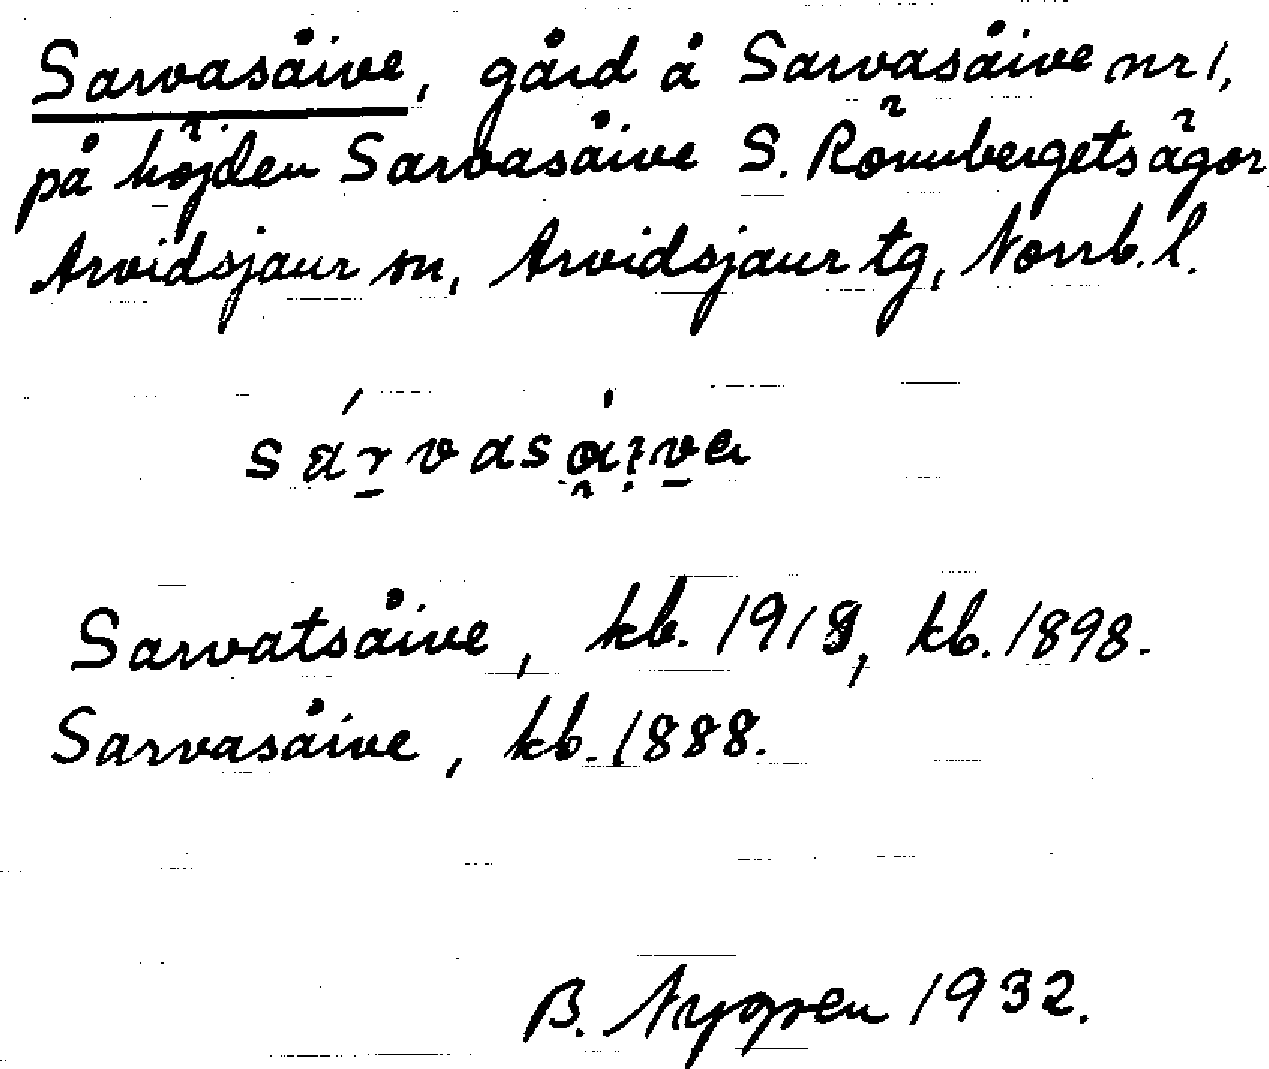 Sarvasåive, gård å Sarvasåive nr 1,
på höjden Sarvasåive S. Rönnbergets ägor
Arvidsjaur sn, Arvidsjaur tg, Norrb. l.
Sarvatsåive, kb. 1918, kb. 1898.
Sarvasåive, kb. 1888.
B. Nygren 1932.